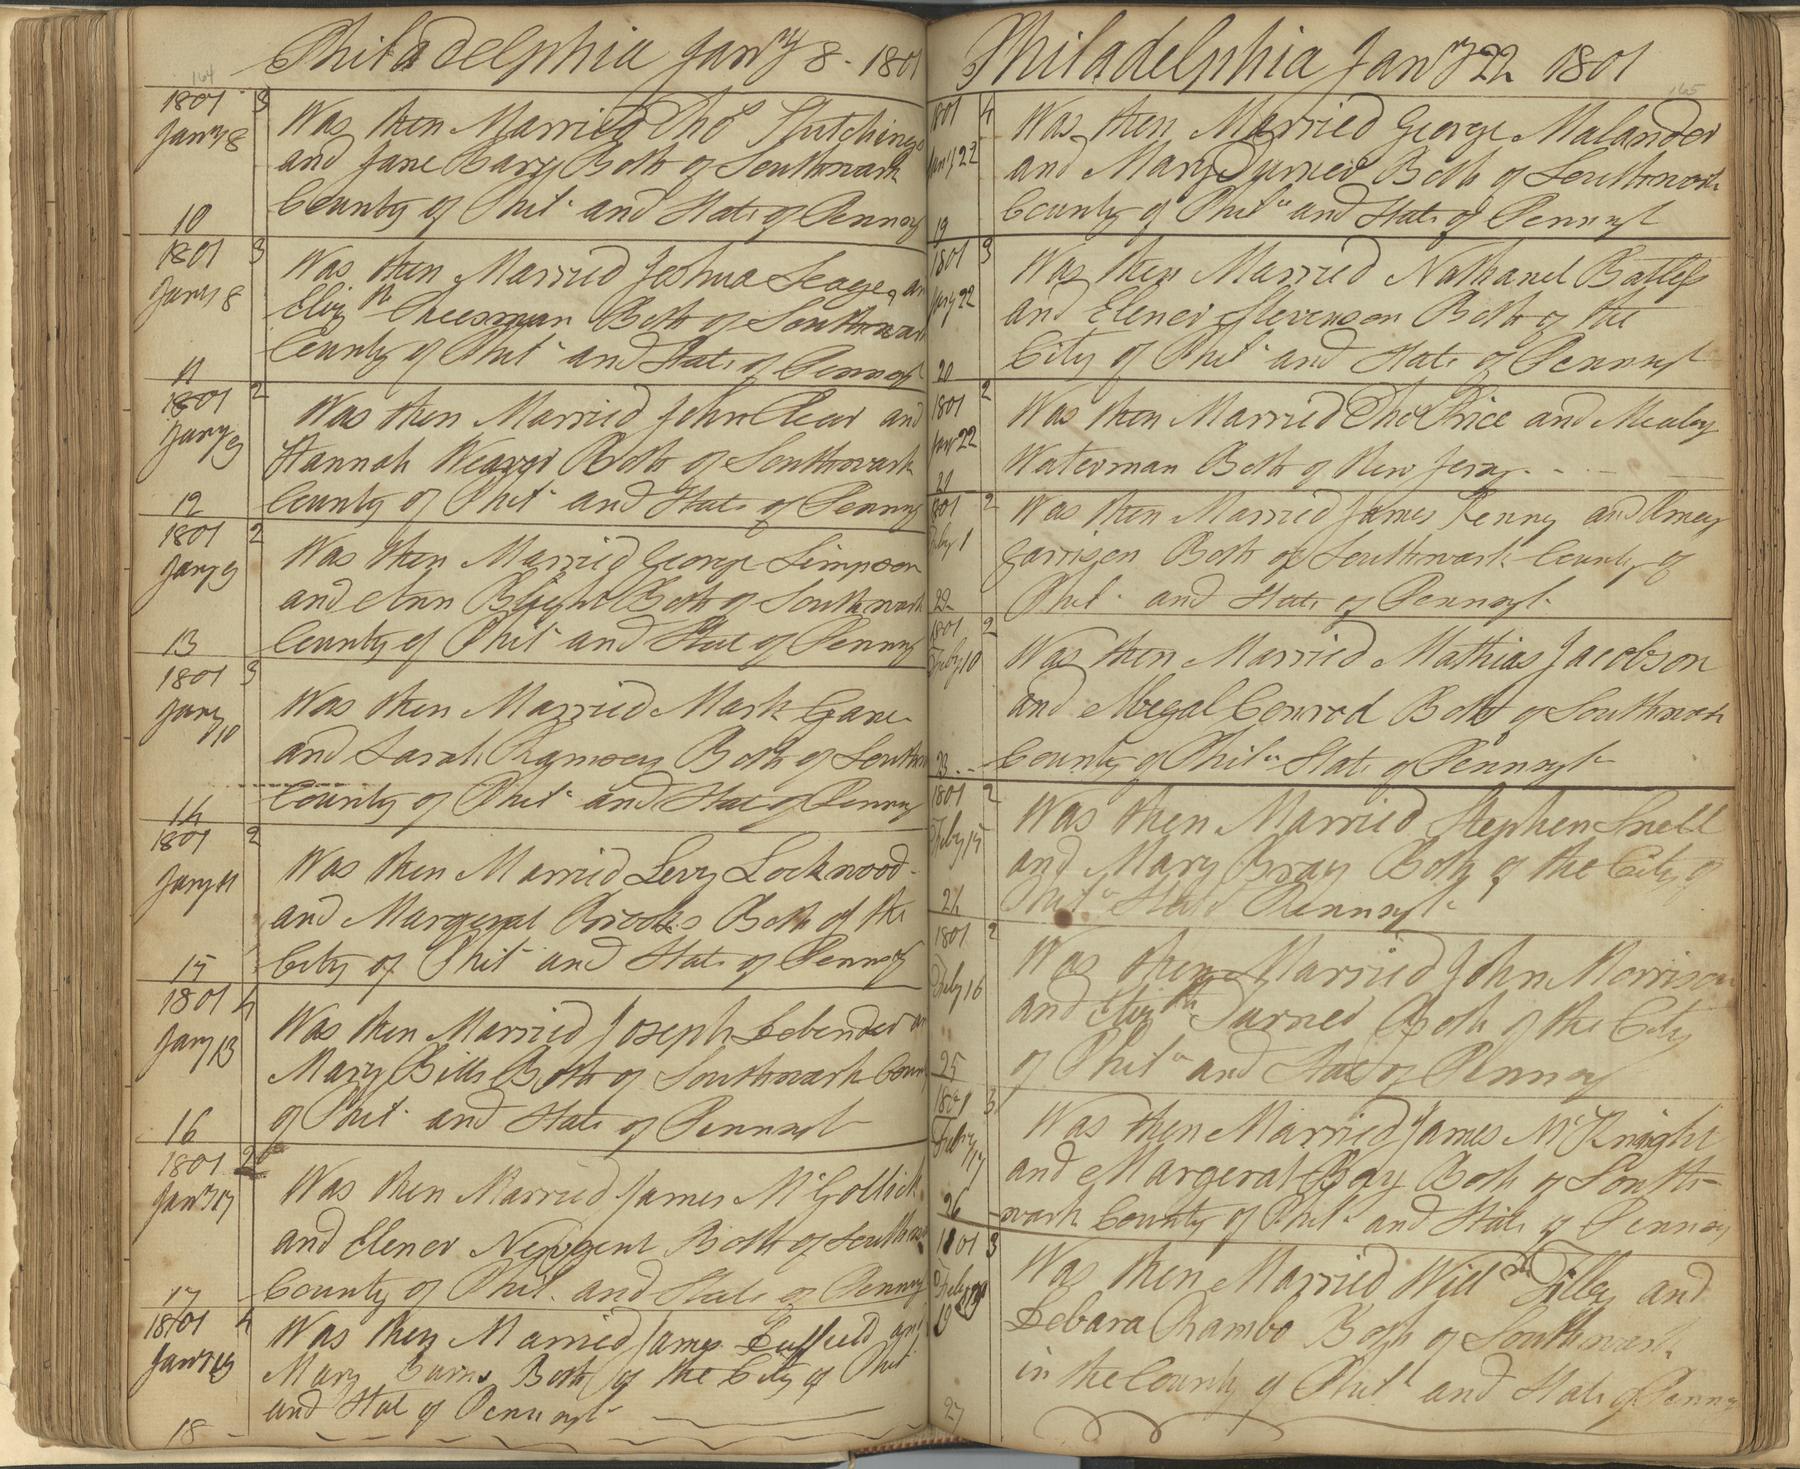 164
Philadelphia Jany 8 - 1801
1801 3
Jany 8
Was then Married Thos Hutchings
and Jane Bary Both of Southwark
10
County of Phila and State of Pennsy
1801 3
Jany 8
Was then Married Joshua Seager an
Elizth Cheesman Both of Southwark
11
County of Phila and State of Pennsyl
1801 2
Jany 9
Was then Married John Clear and
Hannah Weaver Both of Southwark
12
County of Phila and State of Pennsy
1801 2
Jany 9
Was then Married George Simpson
and Ann Both of Southwark
13
County of Phila and State of Pennsy
1801 3
Jany 10
Was then Married Mark Gane
and Sarah Both of Southw
14
County of Phila and State of Pennsy
1801 2
Jany 11
Was then Married Levy Lockwood
and Margeret Brooks Both of the
15
City of Phila and State of Pennsy
1801 4
Jany 13
Was then Married Joseph Lebender an
Mary Bills Both of Southwark Coun
16
of Phila and State of Pennsyl
1801 2
Jany 17
Was then Married James McGollick
and Elener Newgent Both of Southwa
17
County of Phila. and State of Pennsy
1801 4
Jany 19
Was then Married James and
Mary Both of the City of Phila
18
and State of Pennsyl
165
Philadelphia Jany 22 1801
1801 4
Jany 22
Was then Married George Malander
and Mary Turner Both of Southwark
19
County of Phila and State of Pennsyl
1801 3
Jany 22
Was then Married Nathanel Batless
and Elener Stevenson Both of the
20
City of Phila and State of Pennsyl
1801 2
Jany 22
Was then Married Thos Price and
Waterman Both of New Jersy
21
1801 2
Feby 1
Was then Married James Kenny and Amey
Garrison Both of Southwark County of
22
Phila and State of Pennsyl
1801 2
Feby 10
Was then Married Mathias Jacobson
and Abegal Conrod Both of Southwark
23
County of Phila State of Pennsyl
1801 2
Feby 15
Was then Married Stephen Snell
and Mary Bray Both of the City of
24
Phila State Pennsyl
1801 2
Feby 16
Was then Married John Morrison
and Elizth Turner Both of the City
25
of Phila and State of Pennsy
1801 3
Feby 17
Was then Married James McKnight
and Margeret Bay Both of South-
26
wark County of Phila and State of Pennsy
1801 3
Feby
19
Was then Married Willm Tilley and
Debara Rambo Both of Southwark
in the County of Phila and State of Pennsy
27